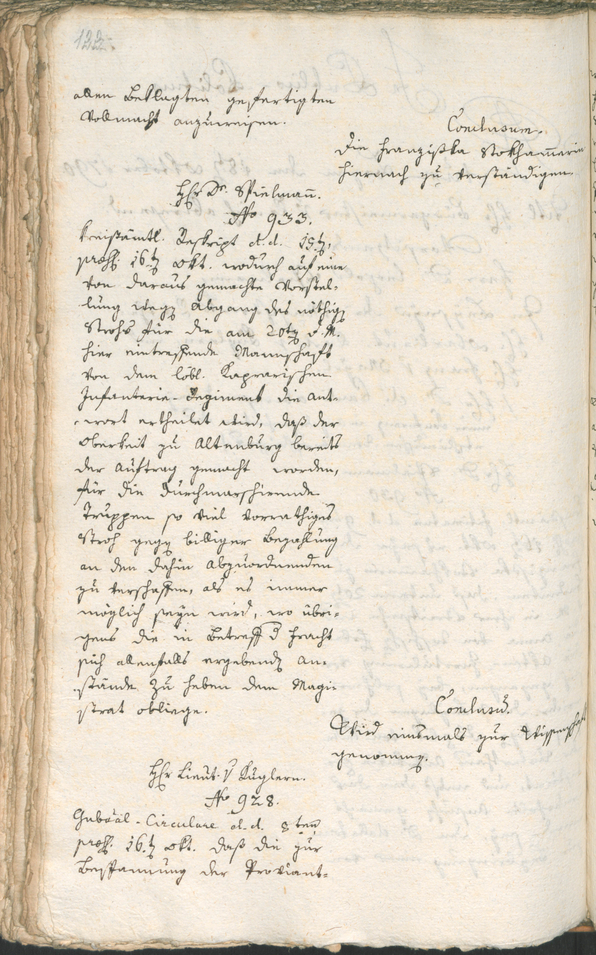 122.
allen Beklagten gefertigten
Vollmacht anzuweisen.
Conclusum.
Die Franziska Stokham̄erin
hiernach zu verständigen
H. Hr. Dr. Spielmañ.
No 933.
Kreißämtl. Reskript d. d. 15ten
prße. 16ten Okt. wodurch auf eine
von daraus gemachte Vorstel-
lung wegen Abgang des nöthigen
Strohs für die am 20ten d. M.
hier eintreffende Mannschaft
von dem löbl. Kaprarischen
Infanterie-Regiment die Ant-
wort ertheilet wird, daß der
Oberkeit zu Altenburg bereits
der Auftrag gemacht worden,
für die durchmarschirende
Truppen so viel vorrathiges
Stroh gegen billiger Bezahlung
an den dahin Abzuordnenden
zu verschaffen, als es immer
möglich seyn wird, wo übri-
gens die in Betreff d Fracht
sich allenfalls ergebenden An-
stände zu heben dem Magi-
strat obliege.
Conclusū.
Wird einsmals zur Wissenschaft
genommen.
H. Hr Lieut. v Kuglern.
No 928.
Gubãal-Circulare d. d. 8ten
prße. 16ten Okt. daß die zur
Bespannung der Proviant-